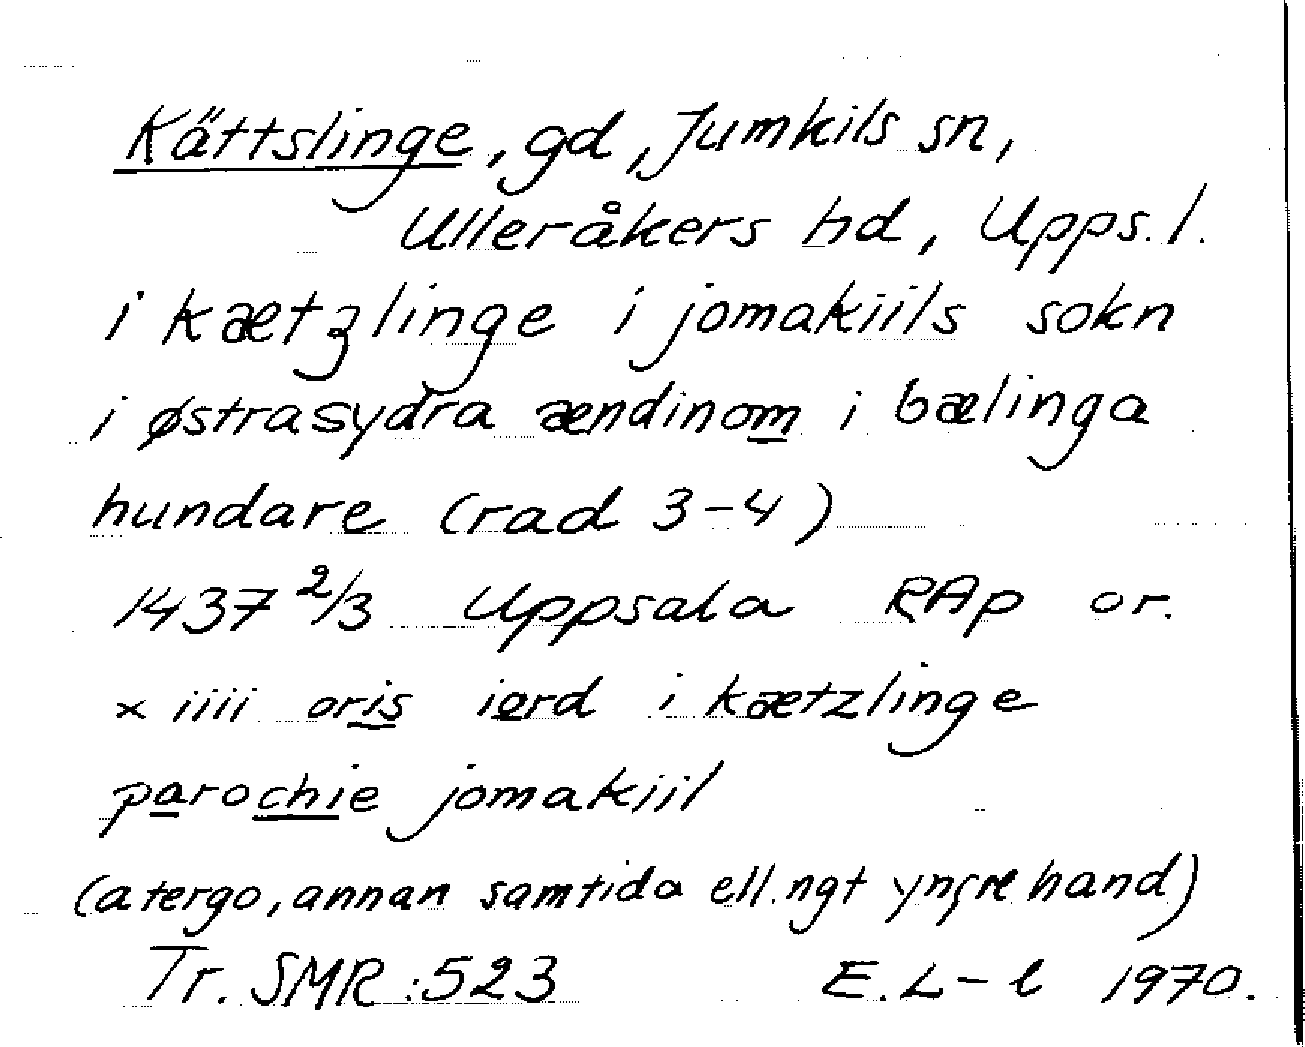 Kättslinge, gd, Jumkils sn,
Ulleråkers hd, Upps. l.
i kætzlinge i jomakiils sokn
i østrasydra ændinom i bælinga
hundare (rad 3-4)
1437 2/3 Uppsala RAp or.
xiiii oris iord i kætzlinge
parochie jomakiil
(a tergo, annan samtida ell. ngt yngre hand)
Tr. SMR:523 E. L-l 1970.